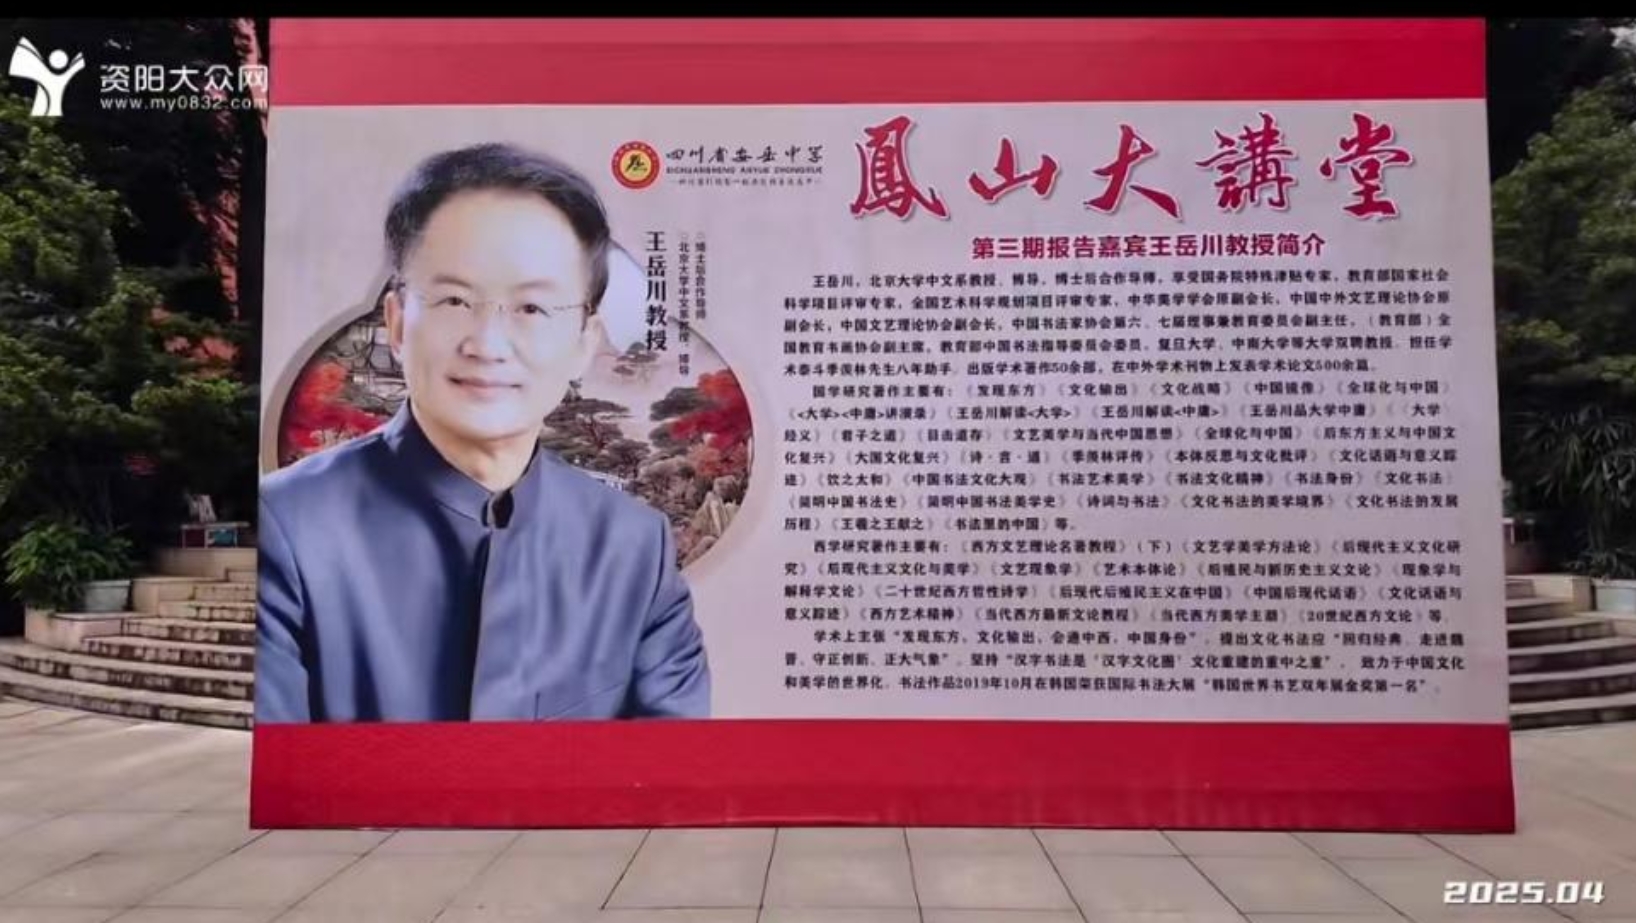 资阳大众网
www.my0832.com
四川省安岳中学
SICHUANSHENG ANYUE ZHONGXUE
鳳山大講堂
第三期报告嘉宾王岳川教授简介
王岳川教授
○北京大学中文系教授、博导
○博士后合作导师
王岳川，北京大学中文系教授、博导，博士后合作导师，享受国务院特殊津贴专家，教育部国家社会
科学项目评审专家，全国艺术科学规划项目评审专家，中华美学学会原副会长，中国中外文艺理论协会原
副会长，中国文艺理论协会副会长，中国书法家协会第六、七届理事兼教育委员会副主任，（教育部）全
国教育书画协会副主席，教育部中国书法指导委员会委员，复旦大学、中南大学等大学双聘教授，担任学
术泰斗季羡林先生八年助手。出版学术著作50余部，在中外学术刊物上发表学术论文500余篇。
国学研究著作主要有：《发现东方》《文化输出》《文化战略》《中国镜像》《全球化与中国》
《<大学><中庸>讲演录》《王岳川解读<大学>》《王岳川解读<中庸>》《王岳川品大学中庸》《〈大学〉
经义》《君子之道》《目击道存》《文艺美学与当代中国思想》《全球化与中国》《后东方主义与中国文
化复兴》《大国文化复兴》《诗·言·道》《季羡林评传》《本体反思与文化批评》《文化话语与意义踪
迹》《饮之太和》《中国书法文化大观》《书法艺术美学》《书法文化精神》《书法身份》《文化书法》
《简明中国书法史》《简明中国书法美学史》《诗词与书法》《文化书法的美学境界》《文化书法的发展
历程》《王羲之王献之》《书法里的中国》等。
西学研究著作主要有：《西方文艺理论名著教程》（下）《文艺学美学方法论》《后现代主义文化研
究》《后现代主义文化与美学》《文艺现象学》《艺术本体论》《后殖民与新历史主义文论》《现象学与
解释学文论》《二十世纪西方哲性诗学》《后现代后殖民主义在中国》《中国后现代话语》《文化话语与
意义踪迹》《西方艺术精神》《当代西方最新文论教程》《当代西方美学主题》《20世纪西方文论》等。
学术上主张“发现东方，文化输出，会通中西，中国身份”。提出文化书法应“回归经典、走进魏
晋、守正创新、正大气象”。坚持“汉字书法是‘汉字文化圈’文化重建的重中之重”，致力于中国文化
和美学的世界化。书法作品2019年10月在韩国荣获国际书法大展“韩国世界书艺双年展金奖第一名”。
2025.04